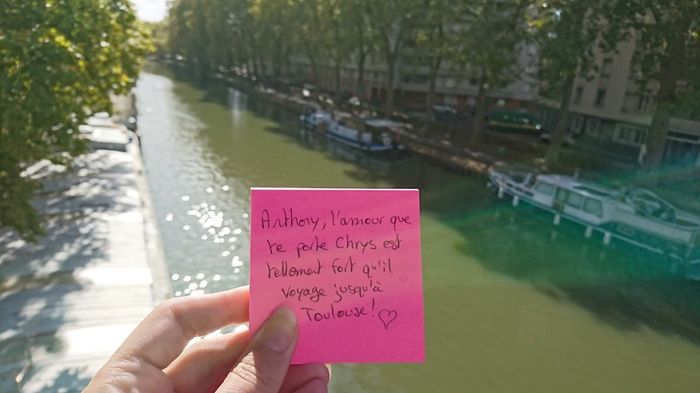 Anthony, l'amour que
te porte Chrys est
tellement fort qu'il
voyage jusqu'à
Toulouse! ♡